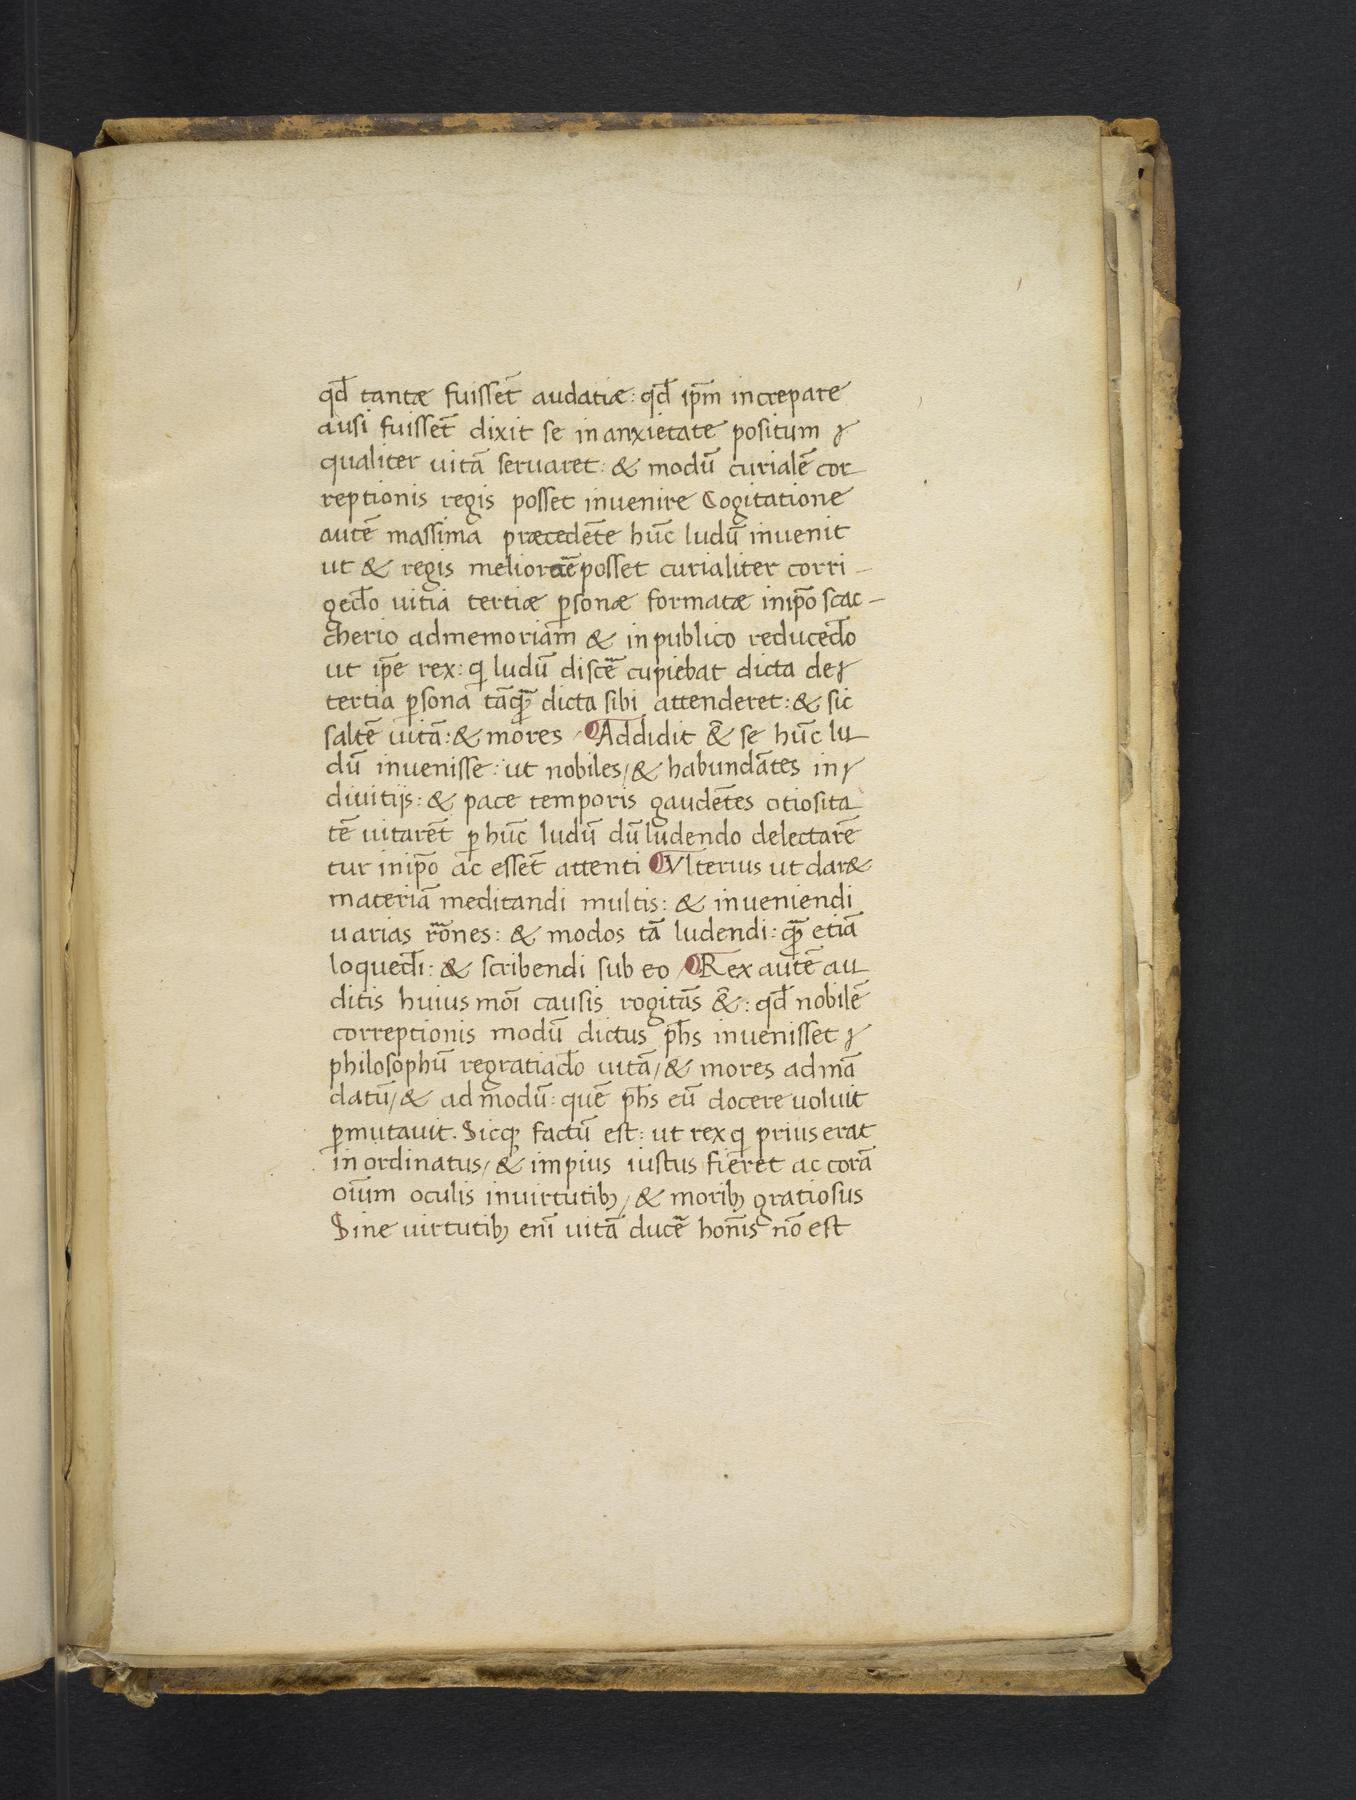 qd̄ tantæ fuisset̄ audatiæ: qd̄ ip̄m increpare
ausi fuisset̄ dixit se in anxietate positum
qualiter uitā seruaret: & modū curialē cor
reptionis regis posset inuenire Cogitatione
autē massima præcedēte hūc ludū inuenit
ut & regis posset curialiter corri-
gēdo uitia tertiæ ꝑsonæ formatæ inip̄o scac-
cherio admemoriam̄ & in publico reducēdo
ut ip̄e rex: qi ludū discē cupiebat dicta de
tertia ꝑsona tāq̄ dicta sibi attenderet: & sic
saltē uitā: & mores / Addidit &̄ se hūc lu
dū inuenisse: ut nobiles/& habundātes in
diuitijs: & pace temporis gaudētes otiosita
tē uitarēt ꝑ hūc ludū dū ludendo delectarē
tur inip̄o āc esset̄ attenti Vlterius ut dar&
materiā meditandi multis: & inueniendi
uarias rōnes: & modos tā ludendi: q̄ etiā
loquēdi: & scribendi sub eo / Rex autē au
ditis huius moī causis rogitās &̄: qd̄ nobilē
correptionis modū dictus ph̄s inuenisset
philosophū regratiādo uitā/& mores ad mā
datū/& ad modū: quē ph̄s eū docere uoluit
ꝑmutauit. Sicqꝫ factū est: ut rex qi prius erat
in ordinatus/& impius iustus fieret ac corā
oīum oculis inuirtutibꝫ/& moribꝫ gratiosus
Sine uirtutibꝫ enī uitā ducē hōnis nō est